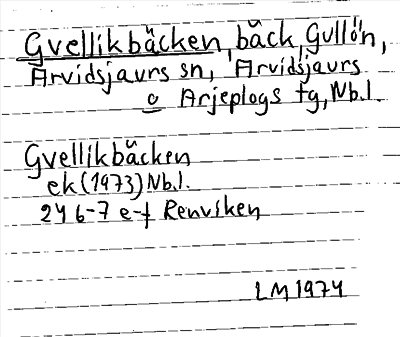 Gvellikbäcken, bäck, Gullön,
Arvidsjaurs sn, Arvidsjaurs
o Arjeplogs tg, Nb.l.
Gvellikbäcken
ek (1973) Nb.l.
24 6-7 e-f Renviken
LM 1974